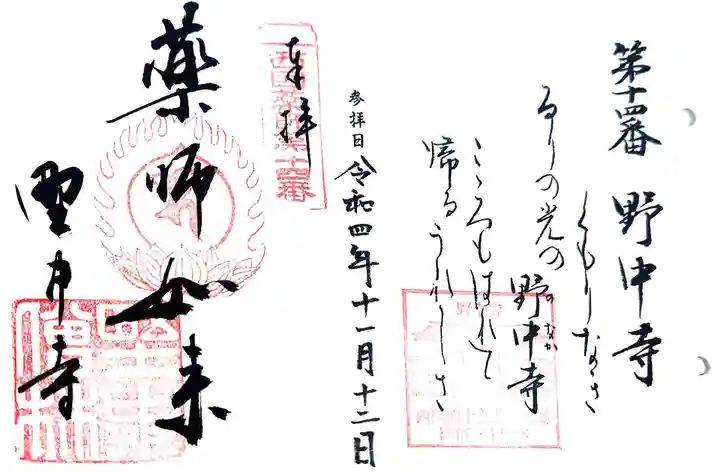 第十四番 野中寺
くもりなき
るりの光の野中寺
のなか
こゝろもはれて
帰るうれしさ
参拝日 令和四年十一月十二日
奉拝
西国薬師第十四番
薬師如来
野中寺